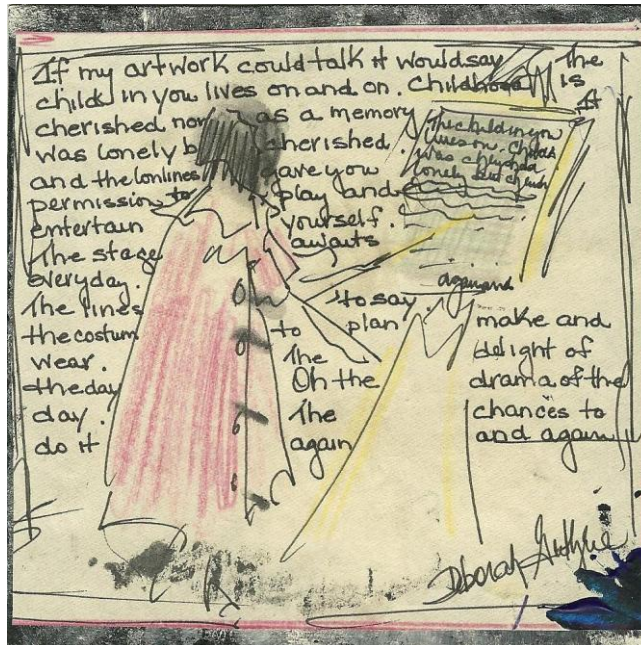 If my artwork could talk it would say The
child in you lives on and on. Childhood is
cherished now as a memory It
was lonely b cherished.
and the lonlines gave you
permission to play and
entertain yourself.
The stage awaits
everyday. Oh
The lines to say.
the costum to plan make and
wear. The delight of
the day Oh the drama of the
day. The chances to
do it again and again
The child in you
lives on. Childh
was cherished
lonely but
again and
Deborah Guthrie